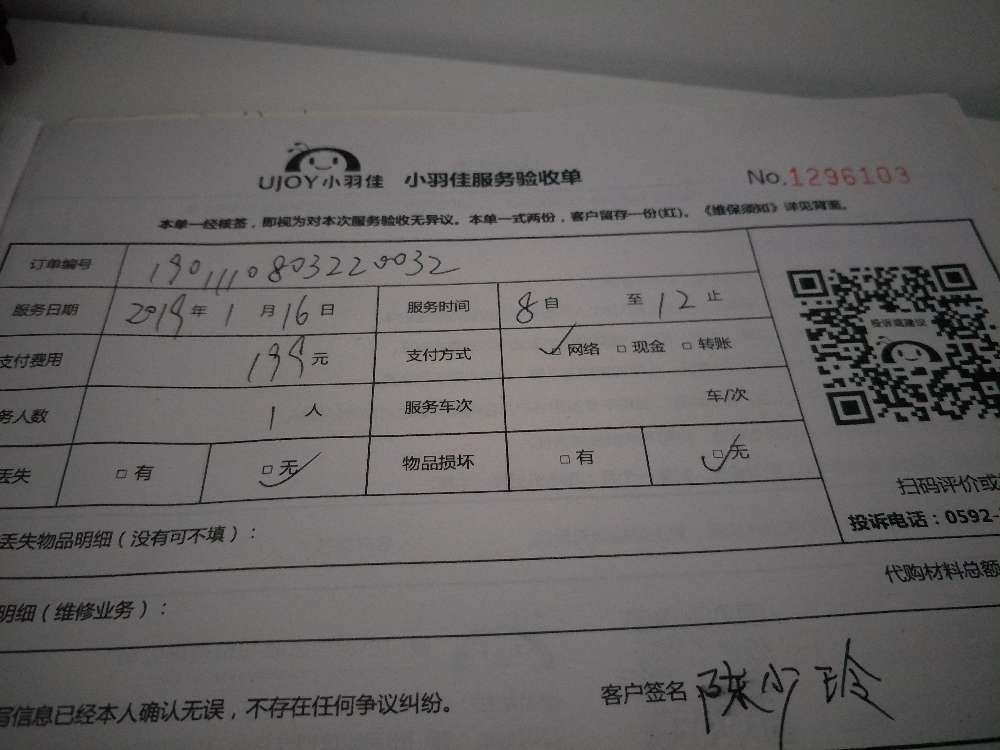 UJOY小羽佳 小羽佳服务验收单 No.1296103
本单一经核签，即视为对本次服务验收无异议。本单一式两份，客户留存一份(红)。《维保须知》详见背面。
订单编号 1901110803220032
服务日期 2019年1月16日 服务时间 8自 至12止
支付费用 199元 支付方式 □网络 □现金 □转账
务人数 1人 服务车次 车/次
丢失 □有 □无 物品损坏 □有 □无
投诉或建议
扫码评价或
投诉电话：0592-
丢失物品明细（没有可不填）：
代购材料总额
明细（维修业务）：
写信息已经本人确认无误，不存在任何争议纠纷。
客户签名 陈少玲